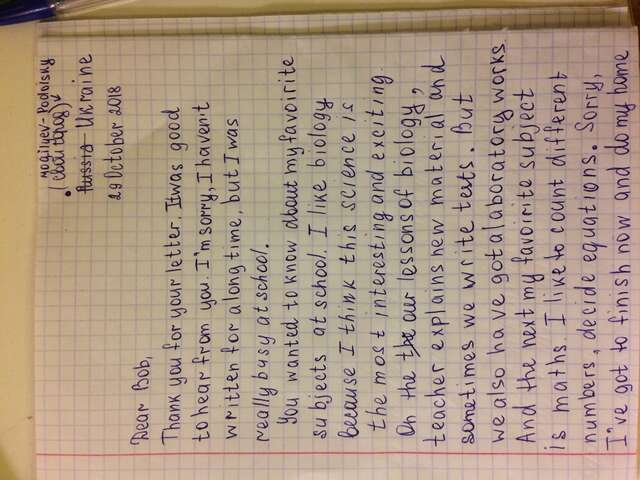 Mogilyev-Podolsky
Russia Ukraine
29 October 2018
Dear Bob,
Thank you for your letter. It was good
to hear from you. I'm sorry, I haven't
written for a long time, but I was
really busy at school.
You wanted to know about my favoirite
subjects at school. I like biology
because I think this science is
the most interesting and exciting.
On the our lessons of biology,
teacher explains new material and
sometimes we write tests. But
we also have got a laboratory works.
And the next my favorite subject
is maths. I like to count different
numbers, decide equations. Sorry,
I've got to finish now and do my home